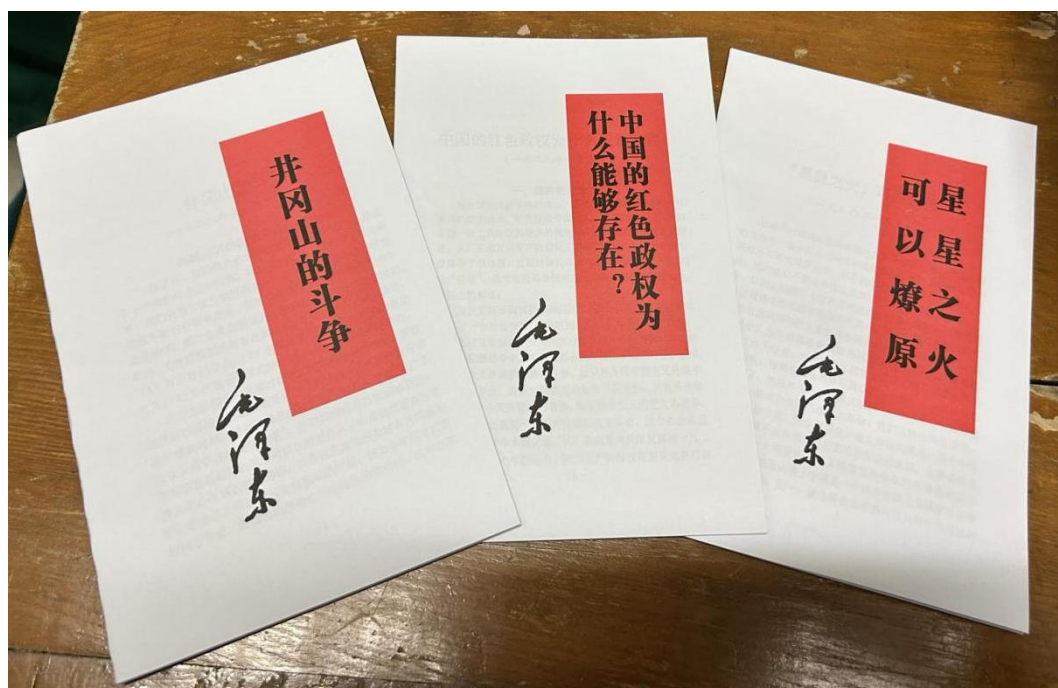 井冈山的斗争
毛泽东
中国的红色政权为
什么能够存在？
毛泽东
星星之火
可以燎原
毛泽东